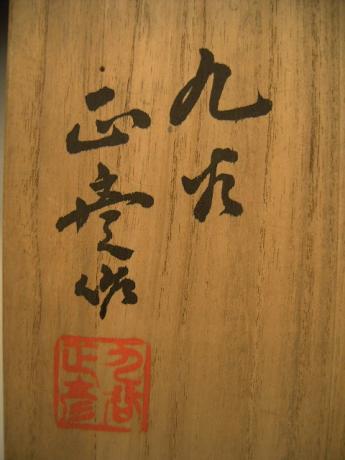 九谷
正彦作
九谷
正彦